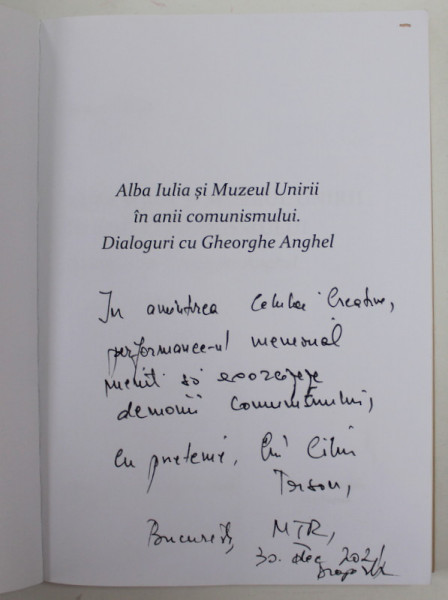 Alba Iulia și Muzeul Unirii
în anii comunismului.
Dialoguri cu Gheorghe Anghel
In amintirea Celulei Creative,
performance-ul memorial
menit să exorcizeze
demonii comunismului,
Cu prietenie, lui
București, MTR,
30. dec 2021